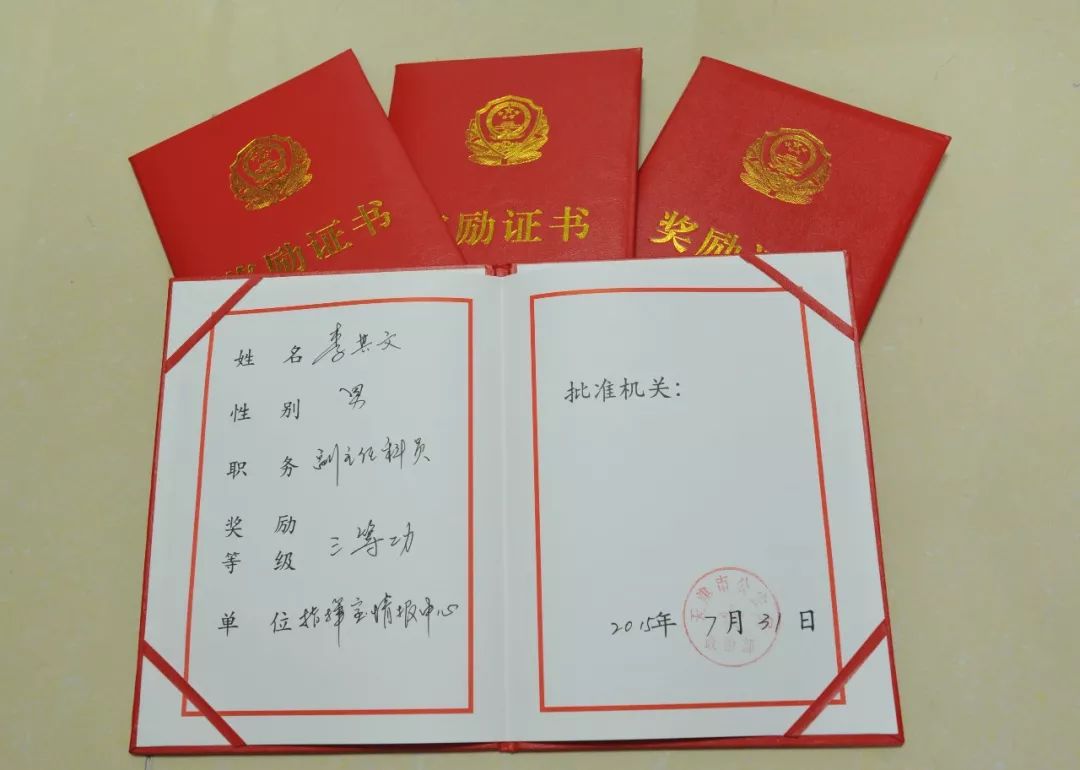 励证书
励证书
奖励
姓名 李其文
性别 男
职务 副主任科员
奖励
等级 三等功
单位 指挥室情报中心
批准机关：
2015年7月31日
天津市公安局
政治部